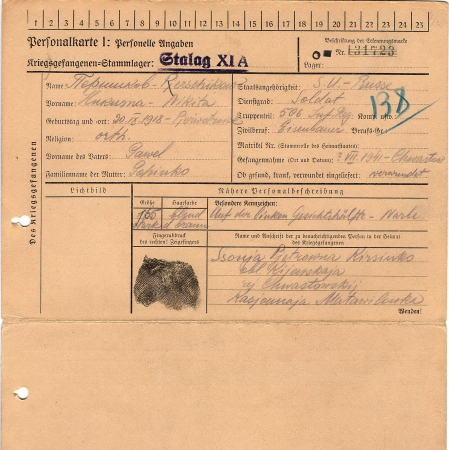 1 2 3 4 5 6 7 8 9 10 11 12 13 14 15 16 17 18 19 20 21 22 23 24 25
Personalkarte I: Personelle Angaben
Beschriftung der Erkennungsmarke
Kriegsgefangenen-Stammlager: Stalag XI A
Nr. 131723
Lager:
Des Kriegsgefangenen
Name:
Vorname: Nikita
Geburtstag und -ort: 20.IX.1918 -
Religion: orth.
Vorname des Vaters: Pawel
Familienname der Mutter:
Staatsangehörigkeit: S.U. - Russe
Dienstgrad: Soldat
Truppenteil: 506 Inf. Rg. Komp. usw.:
138
Zivilberuf: Berufs-Gr.:
Matrikel Nr. (Stammrolle des Heimatstaates)
Gefangennahme (Ort und Datum): ? VII. 1941 - Chwastow
Ob gesund, krank, verwundet eingeliefert: verwundet
Lichtbild
Nähere Personalbeschreibung
Größe
Haarfarbe
Besondere Kennzeichen:
blond
Auf der linken Gesichtshälfte - Narbe
Fingerabdruck
des rechten! Zeigefingers
Name und Anschrift der zu benachrichtigenden Person in der Heimat
des Kriegsgefangenen
Pjetrowna
obl. Kijewskaja
Wenden!